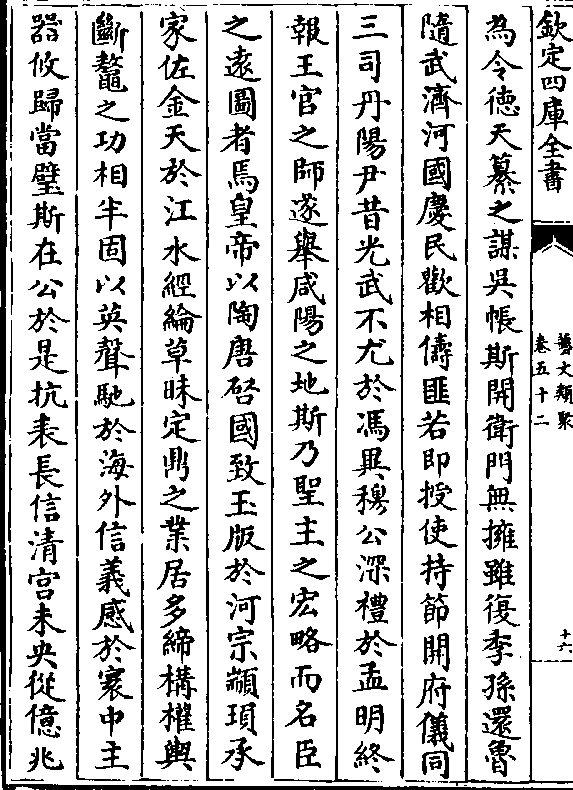 欽定四庫全書
藝文類聚
卷五十二
十六
為令德天纂之謀吳帳斯開衛門無擁雖復季孫還魯
隨武濟河國慶民歡相儔匪若即授使持節開府儀同
三司丹陽尹昔光武不尤於馮異穆公深禮於孟明終
報王官之師遂舉咸陽之地斯乃聖主之宏略而名臣
之遠圖者焉皇帝以陶唐啓國致玉版於河宗顓頊承
家佐金天於江水經綸草昧定鼎之業居多締構權輿
斷鼇之功相半固以英聲馳於海外信義感於寰中主
器攸歸當璧斯在公於是抗表長信清宫未央從億兆